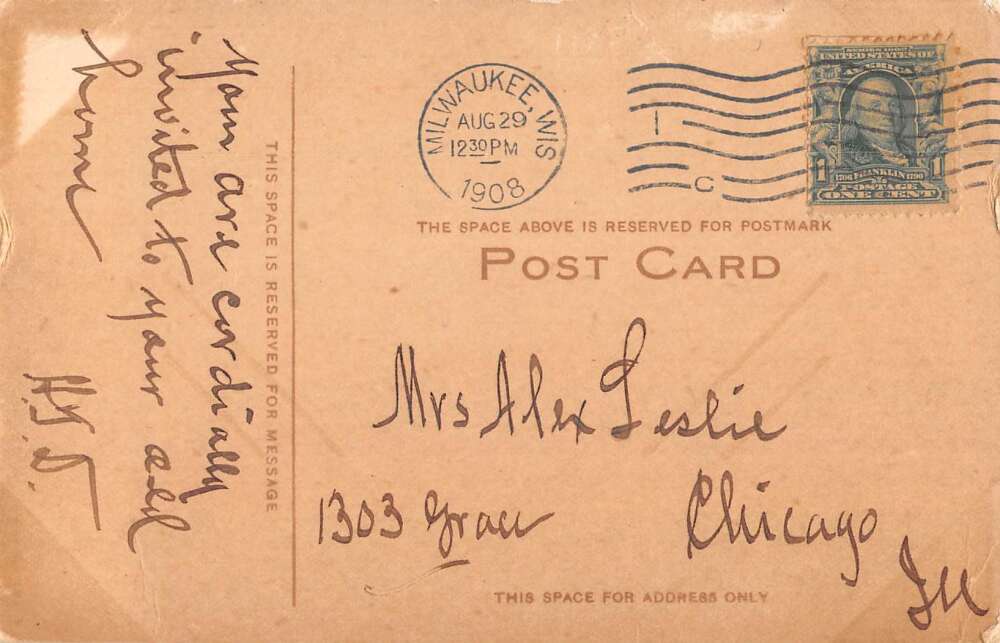 You are cordially
invited to your old
home
H.T.D.
THIS SPACE IS RESERVED FOR MESSAGE
MILWAUKEE, WIS
AUG 29
12 30 PM
1908
1
C
SERIES 1902
UNITED STATES OF
AMERICA
1706 FRANKLIN 1790
1 POSTAGE 1
ONE CENT
THE SPACE ABOVE IS RESERVED FOR POSTMARK
POST CARD
Mrs Alex Leslie
1303 Grace
Chicago
Ill
THIS SPACE FOR ADDRESS ONLY